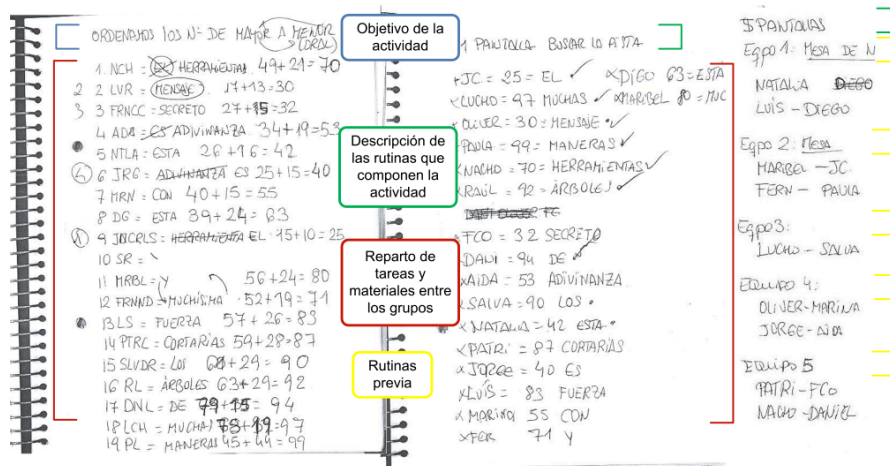 ORDENAMOS LOS Nº DE MAYOR A MENOR
(ORAL)
1. NCH = HERRAMIENTAS. 49+21=70
2 2 LVR = MENSAJE 17+13=30
3 3 FRNCC = SECRETO 27+15=32
4 ADA = ES ADIVINANZA 34+19=53
5 NTLA = ESTA 26+16=42
6 JRG = ADIVINANZA ES 25+15=40
7 MRN = CON 40+15=55
8 DG = ESTA 39+24=63
9 JNCRLS = HERRAMIENTA EL 15+10=25
10 SR =
11 MRBL = Y 56+24=80
12 FRNND = MUCHÍSIMA 52+19=71
13 LS = FUERZA 57+26=83
14 PTRC = CORTARÍAS 59+28=87
15 SLVDR = LOS 60+29=90
16 RL = ÁRBOLES 63+29=92
17 DNL = DE 79+15=94
18 LCH = MUCHAS 78+19=97
19 PL = MANERAS 45+44=99
Objetivo de la
actividad
Descripción de
las rutinas que
componen la
actividad
Reparto de
tareas y
materiales entre
los grupos
Rutinas
previa
1 PANTALLA BUSCAR LA PISTA
JC = 25 = EL
DIGO 63=ESTA
LUCHO = 97 MUCHAS
MARIBEL 80 = MUC
OLIVER = 30 = MENSAJE
PAULA = 99 = MANERAS
NACHO = 70 = HERRAMIENTAS
RAÚL = 92 = ÁRBOLES
FCO = 32 SECRETO
DANI = 94 DE
AIDA = 53 ADIVINANZA
SALVA = 90 LOS
NATALIA = 42 ESTA
PATRI = 87 CORTARÍAS
JORGE = 40 ES
LUÍS = 83 FUERZA
MARINA 55 CON
FER 71 Y
5 PANTALLAS
Egpo 1: MESA DE N
NATALIA DIEGO
LUÍS – DIEGO
Egpo 2: MESA
MARIBEL – JC.
FERN – PAULA
Egpo 3:
LUCHO – SALVA
Equipo 4:
OLIVER-MARINA
JORGE-AIDA
Equipo 5
PATRI-FCO
NACHO-DANIEL